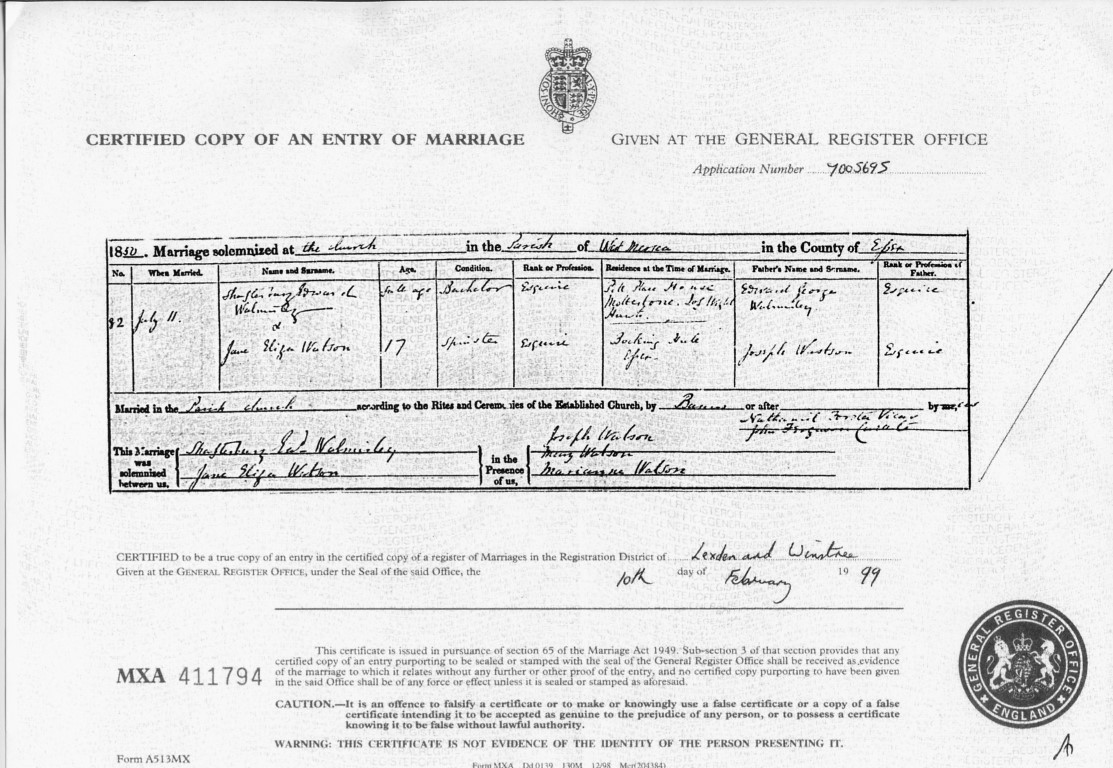 CERTIFIED COPY OF AN ENTRY OF MARRIAGE
GIVEN AT THE GENERAL REGISTER OFFICE
Application Number 7005695
1850. Marriage solemnized at the church in the Parish of West Mersea in the County of Essex
No. When Married. Name and Surname. Age. Condition. Rank or Profession. Residence at the Time of Marriage. Father's Name and Surname. Rank or Profession of Father.
82 July 11. Shaftesbury Edward Walmisley full age Bachelor Esquire Place House Edward George Walmisley Esquire
&
Jane Eliza Watson 17 Spinster Esquire Essex Joseph Watson Esquire
Married in the Parish church according to the Rites and Ceremonies of the Established Church, by Banns or after by me,
Nathaniel Forster Vicar
John Ferguson Curate
This Marriage was solemnized between us, Shaftesbury Ed. Walmisley
Jane Eliza Watson
in the Presence of us, Joseph Watson
Mary Watson
Marianne Watson
CERTIFIED to be a true copy of an entry in the certified copy of a register of Marriages in the Registration District of Lexden and Winstree
Given at the GENERAL REGISTER OFFICE, under the Seal of the said Office, the 10th day of February 1999
MXA 411794
This certificate is issued in pursuance of section 65 of the Marriage Act 1949. Sub-section 3 of that section provides that any
certified copy of an entry purporting to be sealed or stamped with the seal of the General Register Office shall be received as evidence
of the marriage to which it relates without any further or other proof of the entry, and no certified copy purporting to have been given
in the said Office shall be of any force or effect unless it is sealed or stamped as aforesaid.
CAUTION.—It is an offence to falsify a certificate or to make or knowingly use a false certificate or a copy of a false
certificate intending it to be accepted as genuine to the prejudice of any person, or to possess a certificate
knowing it to be false without lawful authority.
WARNING: THIS CERTIFICATE IS NOT EVIDENCE OF THE IDENTITY OF THE PERSON PRESENTING IT.
GENERAL REGISTER OFFICE
ENGLAND
Form A513MX
Form MXA Dd 0139 130M 12/98 Mcr(204384)